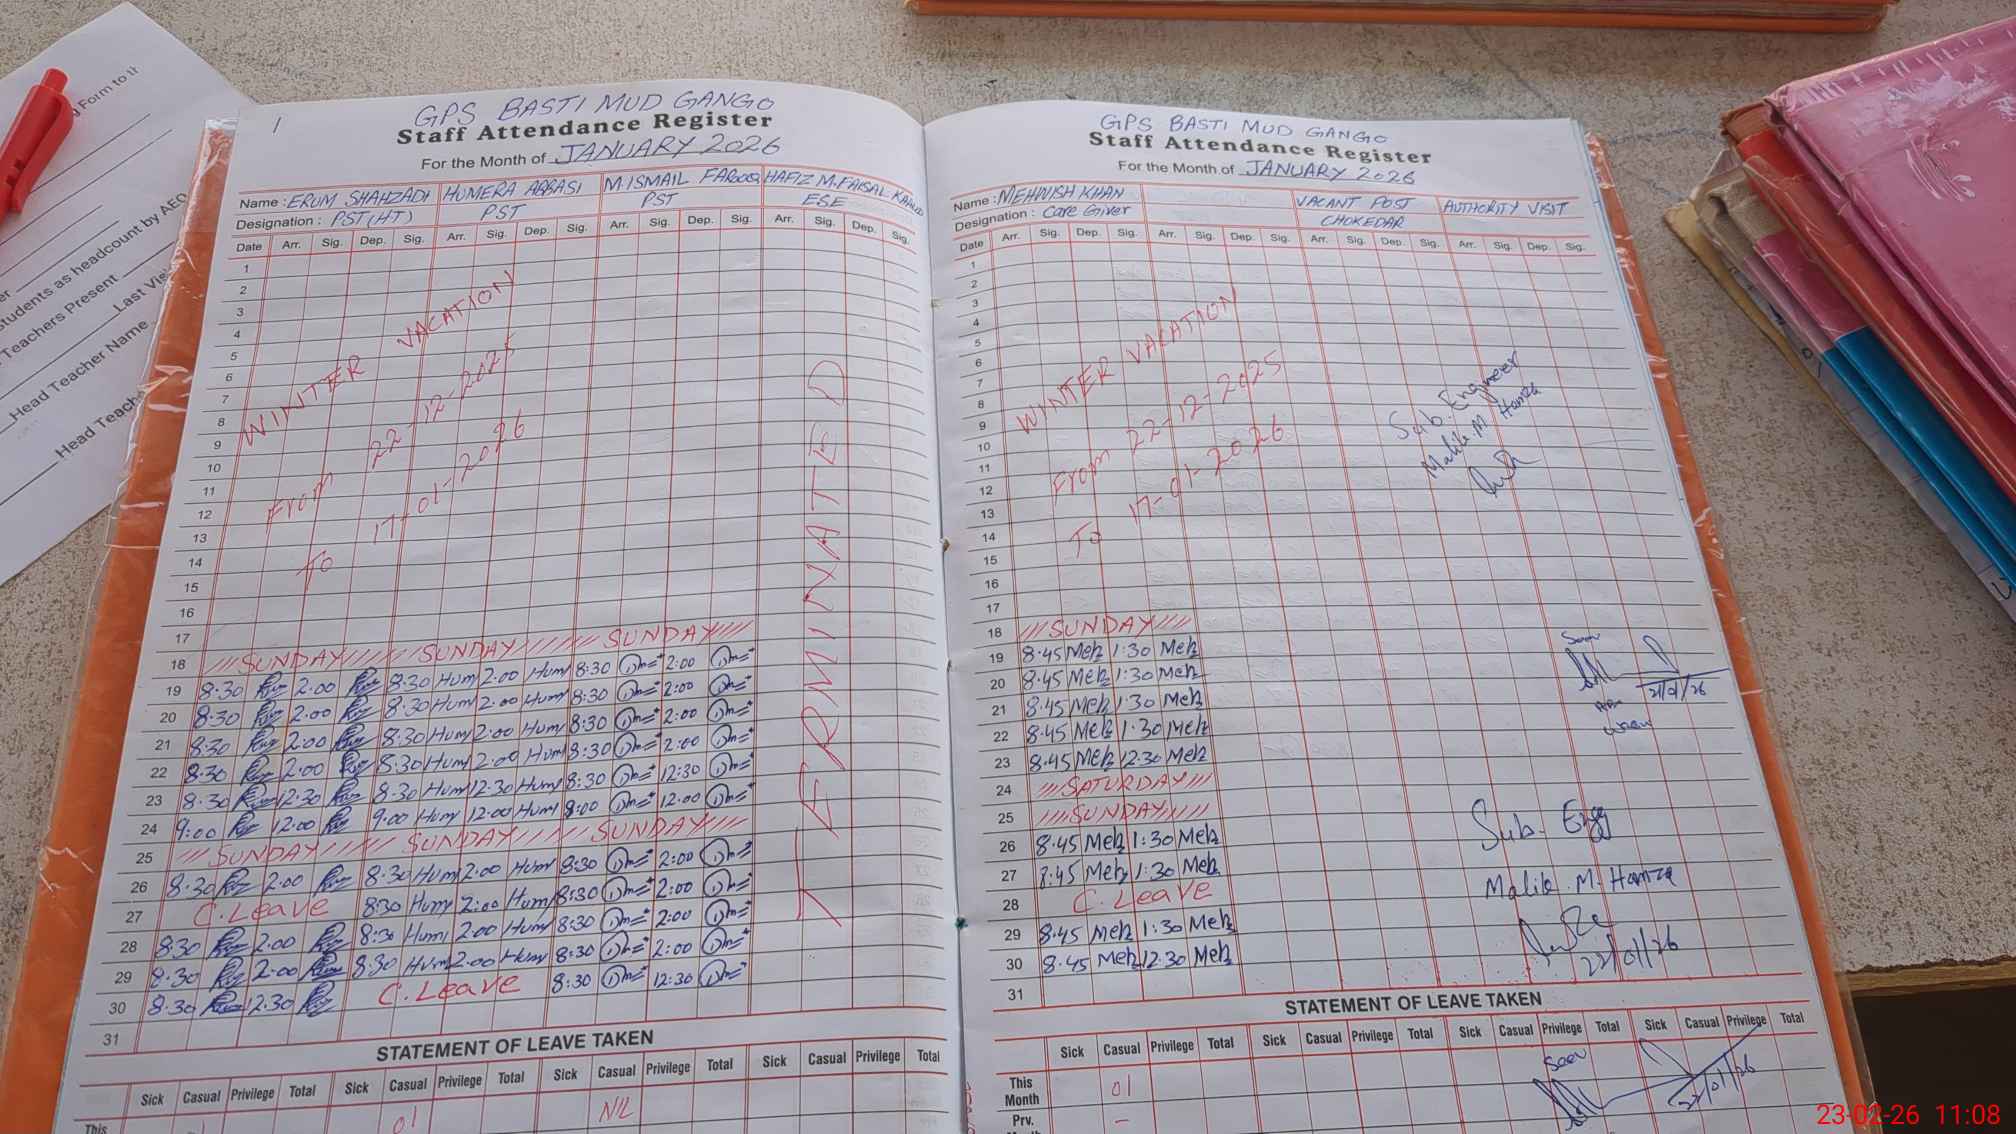 GPS BASTI MUD GANGO
1
Staff Attendance Register
For the Month of JANUARY 2026
Name : ERUM SHAHZADI HUMERA ABBASI M.ISMAIL FAROOQ HAFIZ M.FAISAL
Designation : PST(HT) PST PST ESE
Date Arr. Sig. Dep. Sig. Arr. Sig. Dep. Sig. Arr. Sig. Dep. Sig. Arr. Sig. Dep. Sig.
1
2
3
4
5
6
7
8
9
10
11
12
13
14
15
16
17
WINTER VACATION
From 22-12-2025
To 17-01-2026
TERMINATED
18 SUNDAY SUNDAY SUNDAY
19 8:30 2:00 8:30 Hum 2:00 Hum 8:30 2:00
20 8:30 2:00 8:30 Hum 2:00 Hum 8:30 2:00
21 8:30 2:00 8:30 Hum 2:00 Hum 8:30 2:00
22 8:30 2:00 8:30 Hum 2:00 Hum 8:30 2:00
23 8:30 12:30 8:30 Hum 12:30 Hum 8:30 12:30
24 9:00 12:00 9:00 Hum 12:00 Hum 8:00 12:00
25 SUNDAY SUNDAY SUNDAY
26 8:30 2:00 8:30 Hum 2:00 Hum 8:30 2:00
27 C.Leave 8:30 Hum 2:00 Hum 8:30 2:00
28 8:30 2:00 8:30 Hum 2:00 Hum 8:30 2:00
29 8:30 2:00 8:30 Hum 2:00 Hum 8:30 2:00
30 8:30 12:30 C.Leave 8:30 12:30
31
STATEMENT OF LEAVE TAKEN
Sick Casual Privilege Total Sick Casual Privilege Total Sick Casual Privilege Total Sick Casual Privilege Total
This 01 NIL
GPS BASTI MUD GANGO
Staff Attendance Register
For the Month of JANUARY 2026
Name : MEHWISH KHAN VACANT POST AUTHORITY VISIT
Designation : Care Giver CHOKEDAR
Date Arr. Sig. Dep. Sig. Arr. Sig. Dep. Sig. Arr. Sig. Dep. Sig. Arr. Sig. Dep. Sig.
1
2
3
4
5
6
7
8
9
10
11
12
13
14
15
16
17
WINTER VACATION
From 22-12-2025
To 17-01-2026
Sub Engineer
Malik M Hamza
18 SUNDAY
19 8:45 Meh 1:30 Meh
20 8:45 Meh 1:30 Meh
21 8:45 Meh 1:30 Meh
22 8:45 Meh 1:30 Meh
23 8:45 Meh 12:30 Meh
24 SATURDAY
25 SUNDAY
26 8:45 Meh 1:30 Meh
27 8:45 Meh 1:30 Meh
28 C.Leave
29 8:45 Meh 1:30 Meh
30 8:45 Meh 12:30 Meh
31
Seen
21/01/26
Sub. Engg
Malik M. Hamza
22/01/26
STATEMENT OF LEAVE TAKEN
Sick Casual Privilege Total Sick Casual Privilege Total Sick Casual Privilege Total Sick Casual Privilege Total
This Month 01
Prv. -
Seen
Form to
students as headcount by AEO
Teachers Present
Last
Head Teacher Name
Head Teache
23-02-26 11:08